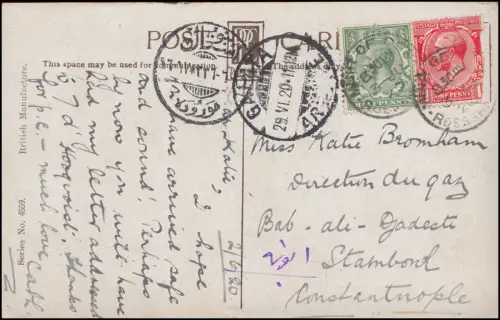 POST CARD
This space may be used for communication
The address
British Manufacture.
Series No. 4559.
2/6/20
Katie, I hope
you have arrived safe
and sound. Perhaps
by now you will have
had my letter addressed
to 7 d'
for p.c. – much love
Miss Katie Bromham
Direction du gaz
Bab-ali-Djadesti
Stamboul
Constantinople
GALATA
29.VI.20
ROSS